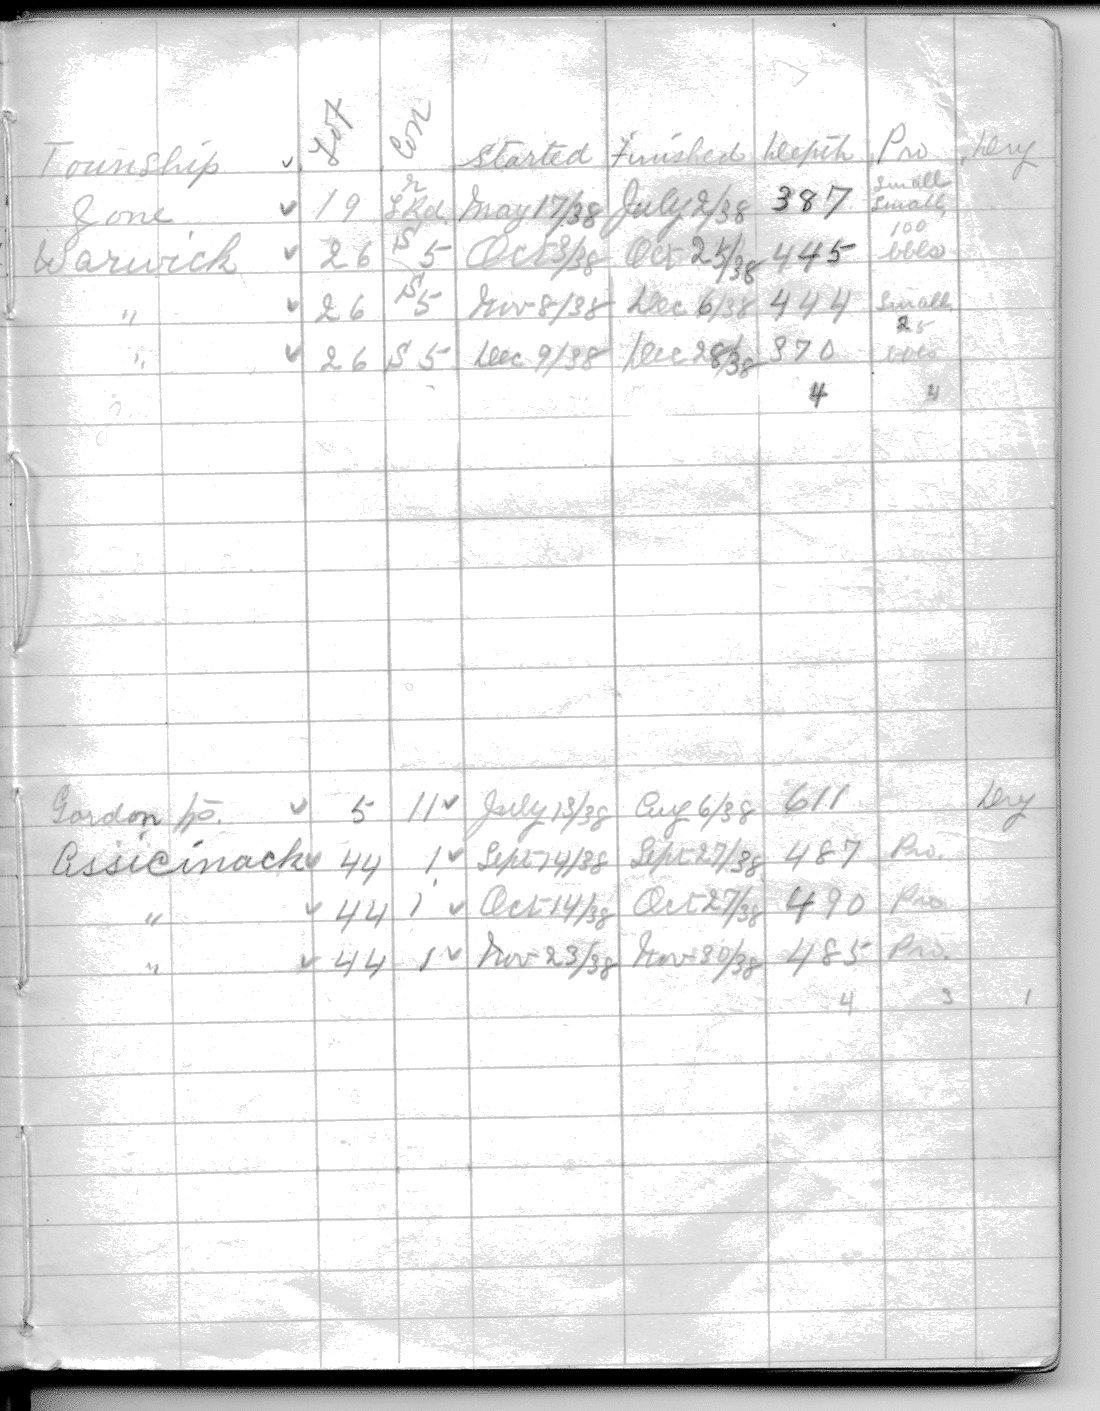 Township Lot Con Started Finished Depth Pro Dry
Small
Zone 19 L.Rd. May 17/38 July 2/38 387 Small
100
Warwick 26 S 5 Oct 3/38 Oct 25/38 445 bbls
" 26 S 5 Nov 8/38 Dec 6/38 444 Small
25
" 26 S 5 Dec 9/38 Dec 28/38 370 bbls
4 4
Gordon 5 11 July 13/38 Aug 6/38 611 Dry
Assicinack 44 1 Sept 14/38 Sept 27/38 487 Pro.
" 44 1 Oct 14/38 Oct 27/38 490 Pro
" 44 1 Nov 23/38 Nov 30/38 485 Pro.
4 3 1